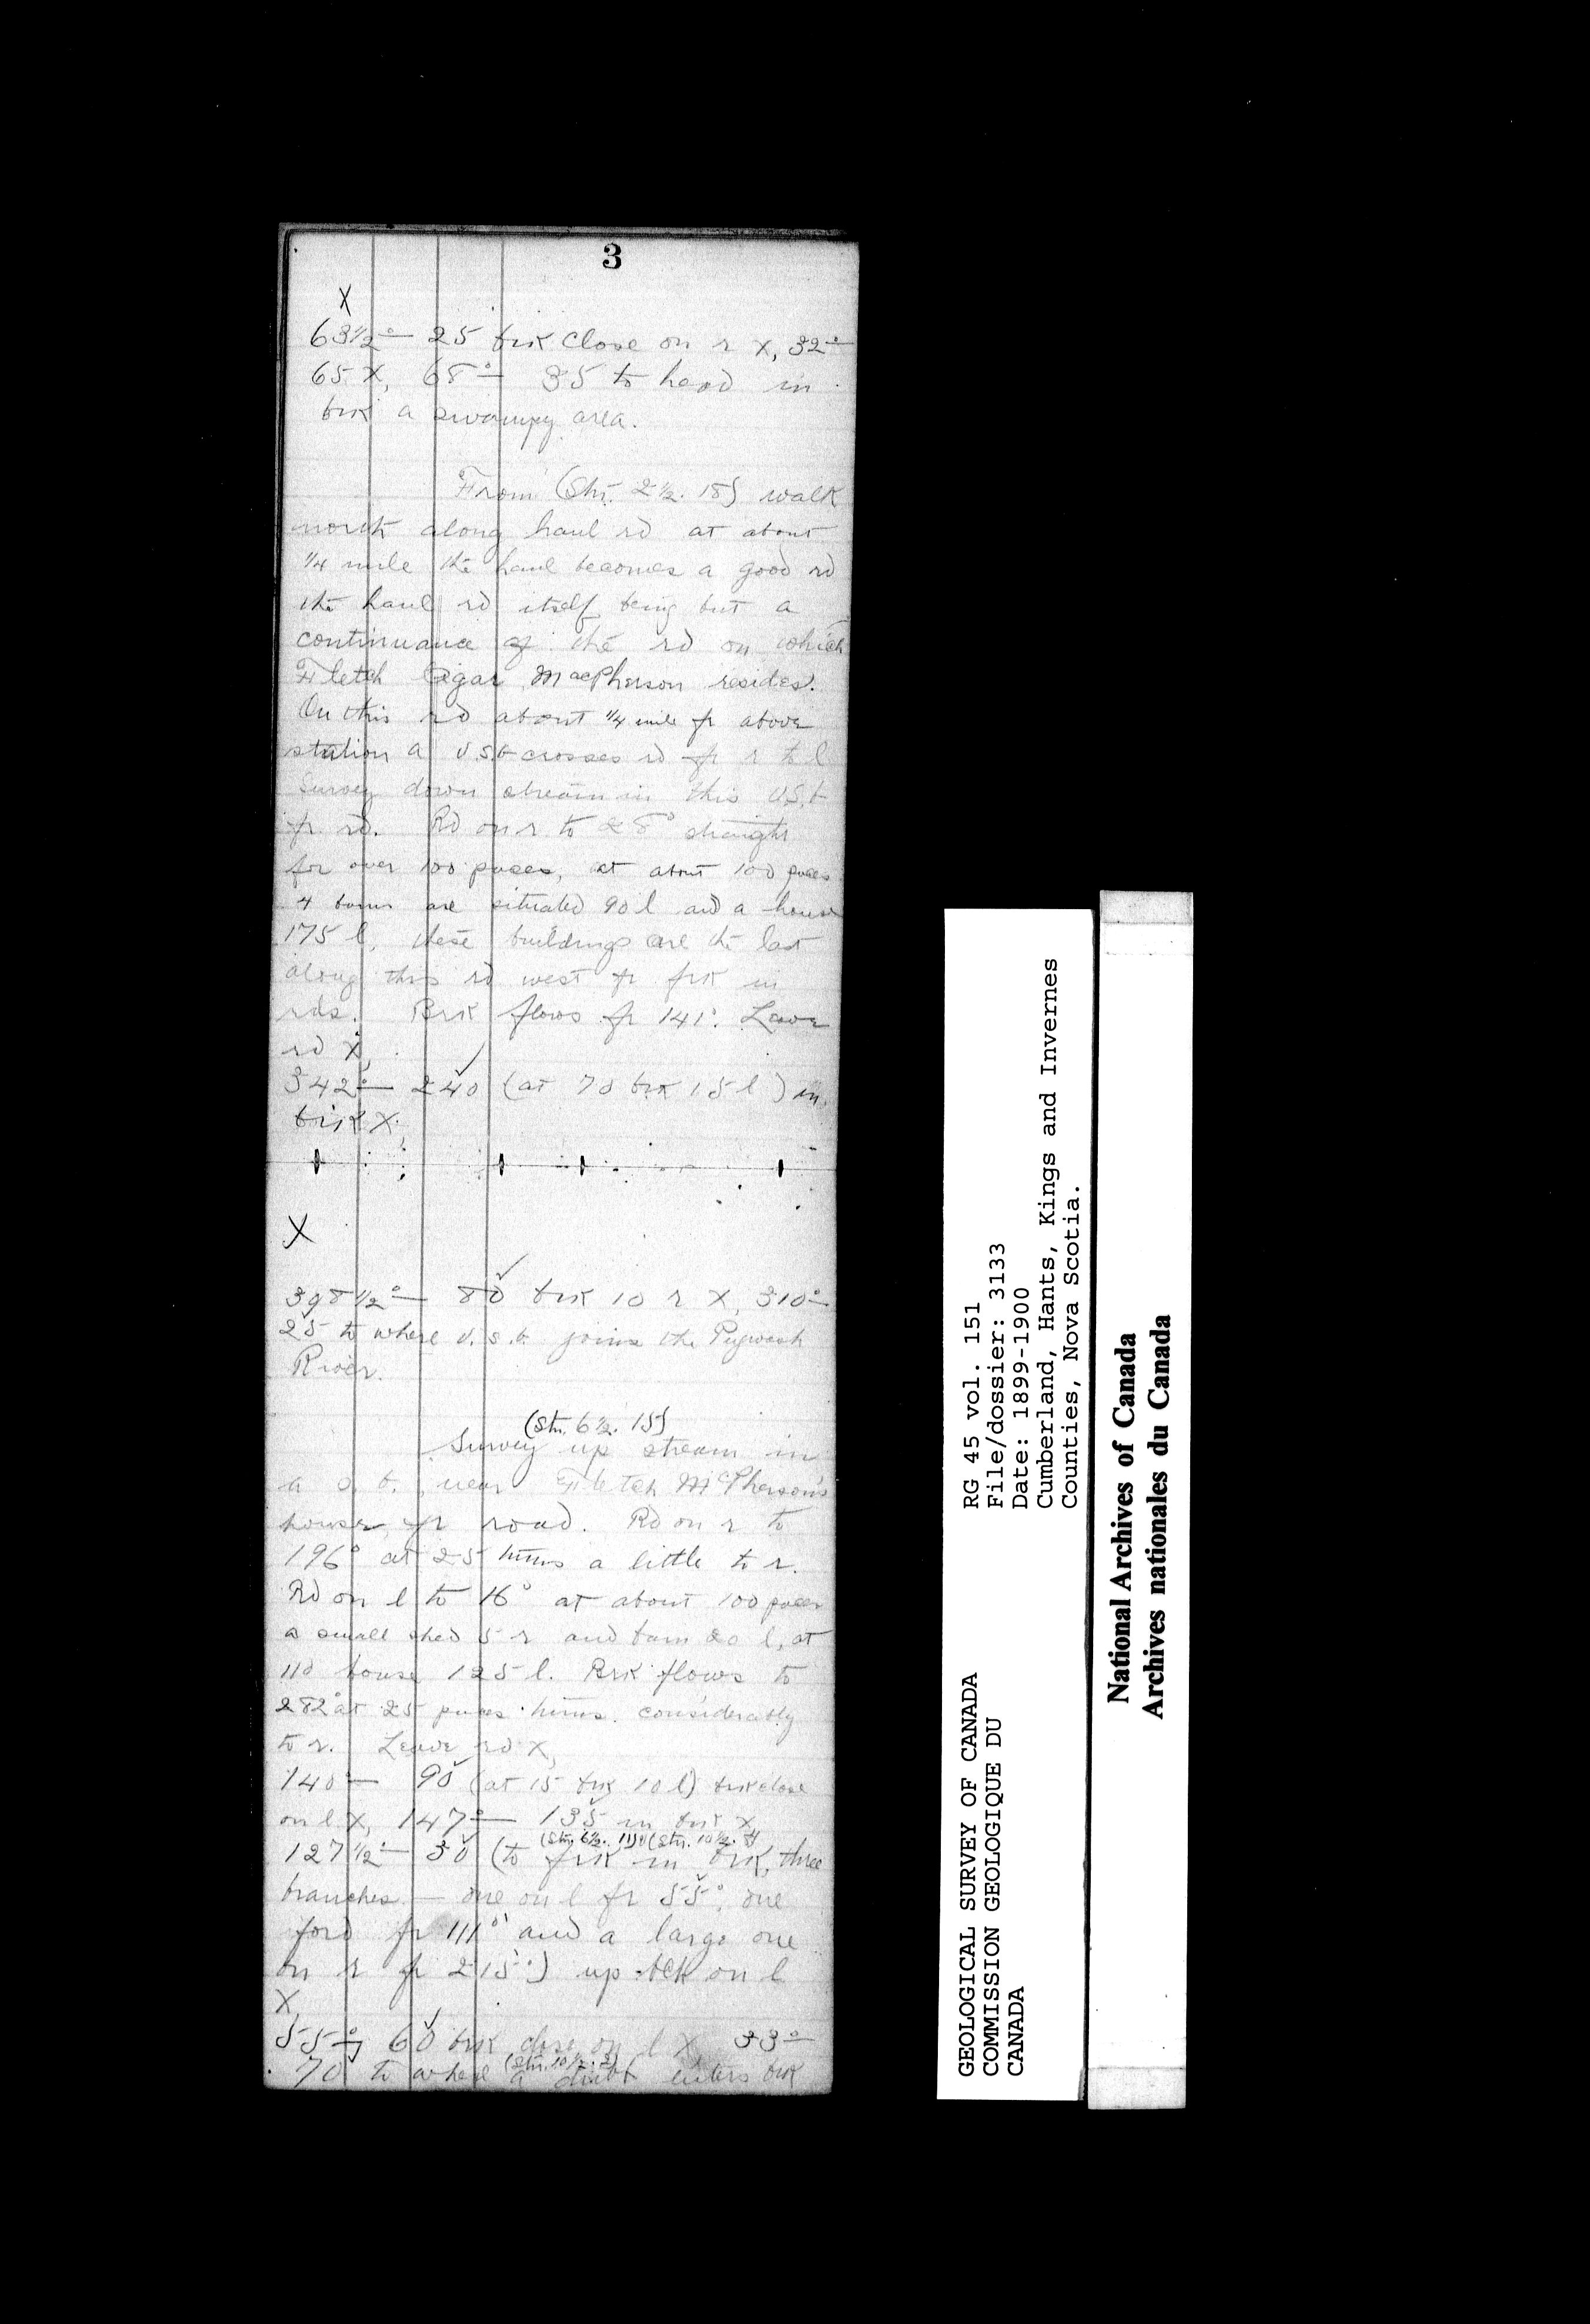 3
X
63½° — 25 brk close on r X, 32° —
65 X, 68° — 35 to head in
brk a swampy area.
From (Stn. 2½. 18) walk
north along haul rd at about
¼ mile the haul becomes a good rd
the haul rd itself being but a
continuance of the rd on which
Fletch Egar MacPherson resides.
On this rd about ¼ mile fr above
station a v.s.b crosses rd fr r to l
Survey down stream in this v.s.b
fr rd. Rd on r to 28° straight
for over 100 paces, at about 100 paces
4 barns are situated 90 l and a house
175 l, these buildings are the last
along this rd west fr frk in
rds. Brk flows fr 141°. Leave
rd X,
342° — 240 (at 70 brk 15 l) in
brk X,
X
398½° — 80 brk 10 r X, 310° —
25 to where v.s.b. joins the Pugwash
River.
(Stn. 6½. 15)
Survey up stream in
a s. b. near Fletch McPherson's
house, fr road. Rd on r to
196° at 25 turns a little to r.
Rd on l to 16° at about 100 paces
a small shed 5 r and barn 20 l, at
110 house 125 l. Brk flows to
282° at 25 paces turns considerably
to r. Leave rd X,
140° — 90 (at 15 brk 10 l) brk close
on l X, 147° — 135 in brk X
(Stn. 6½. 11) (Stn. 10½. 4)
127½° — 30 (to frk in brk, three
branches — one on l fr 55°, one
ford fr 111° and a large one
on r fr 215°) up bck on l
X,
55° — 60 brk close on l X, 33° —
(Stn. 10½. 3)
70 to where a enters brk
RG 45 vol. 151
File/dossier: 3133
Date: 1899-1900
Cumberland, Hants, Kings and Invernes
Counties, Nova Scotia.
GEOLOGICAL SURVEY OF CANADA
COMMISSION GEOLOGIQUE DU
CANADA
National Archives of Canada
Archives nationales du Canada